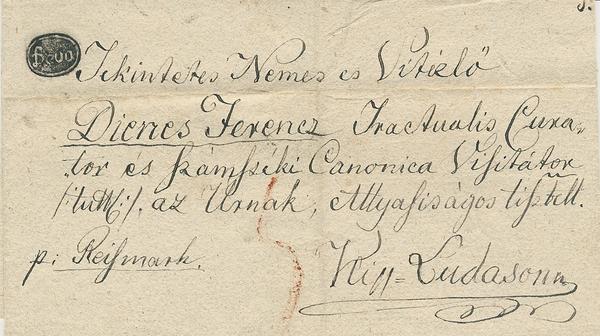 Déva
Tekintetes Nemes es Vitézlő
Dienes Ferencz Tractualis Cura-
tor es Számszéki Canonica Visitátor
/:tutt:/. az Urnak, Attyafiságos tisztelt.
p: Reißmark.
Kiss=Ludason